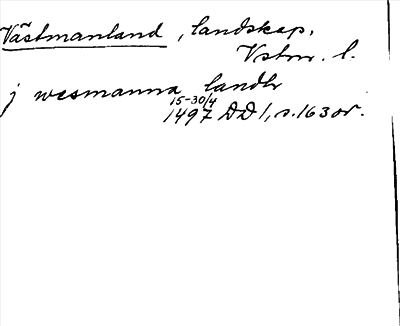 Västmanland, landskap.
Vstm. l.
j wesmanna landh
15-30/4
1497 DD 1, s. 163 or.